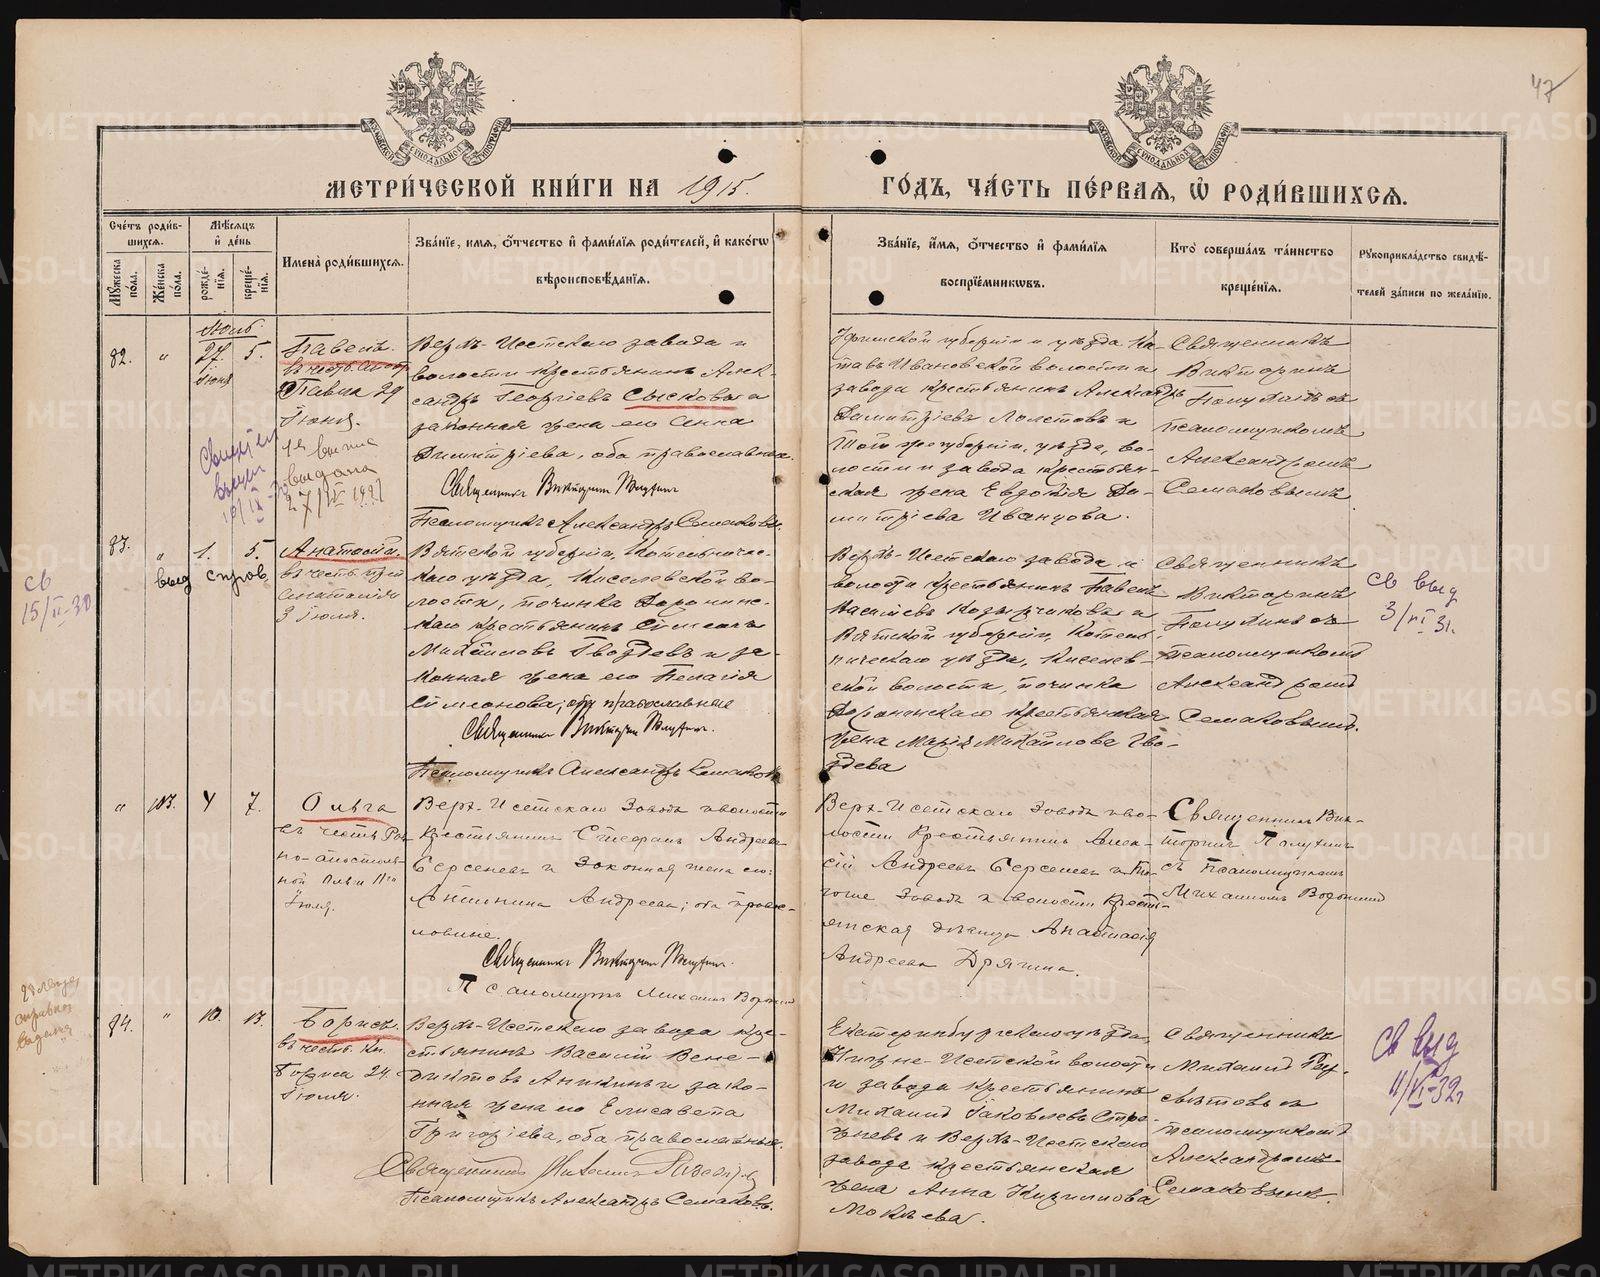 47
МОСКОВСКОЙ СѴНОДАЛЬНОЙ ТИПОГРАФІИ
МОСКОВСКОЙ СѴНОДАЛЬНОЙ ТИПОГРАФІИ
МЕТРИ́ЧЕСКОЙ КНИ́ГИ НА 1915.
ГО́ДЪ, ЧА́СТЬ ПЕ́РВАѦ, Ѡ РОДИ́ВШИХСѦ.
Сче́тъ роди́в-
шихсѧ.
Мꙋ́жеска по́ла.
Же́нска по́ла.
Мѣ́сѧцъ
и҆ де́нь
рожде́-
нїѧ.
креще́-
нїѧ.
Имена̀ роди́вшихсѧ.
Зва́нїе, и҆́мѧ, ѻ҆́тчество и҆ фами́лїѧ роди́телей, и҆ како́гѡ
вѣроисповѣ́данїѧ.
Зва́нїе, и҆́мѧ, ѻ҆́тчество и҆ фами́лїѧ
воспрїе́мникѡвъ.
Кто̀ соверша́лъ та́инство
креще́нїѧ.
Рꙋкоприкла́дство свидѣ́-
телей за́писи по жела́нїю.
82.
"
27
іюня
5.
Павелъ.
въ честь апост.
Павла 29
Іюня.
выдана
27/IV 1927
Верхъ-Исетскаго завода и
волости крестьянинъ Алек-
сандръ Георгіевъ Сысковъ и
законная жена его Анна
Димитріева, оба православные.
Священникъ Викторинъ Полухинъ
Псаломщикъ Александръ Семаковъ.
Уфимской губерніи и уѣзда Ка-
тавъ Ивановской волости и
завода крестьянинъ Александръ
Димитріевъ
Той же губерніи, уѣзда, во-
лости и завода крестьян-
ская жена Евдокія Ди-
митріева Иванцова.
Священникъ
Викторинъ
Полухинъ съ
псаломщикомъ
Александромъ
Семаковымъ
83.
"
1.
5.
Анатолій.
въ честь
Анатолія
3 іюля.
выд справ
св
15/II-30
Вятской губерніи, Котельниче-
скаго уѣзда, Киселевской во-
лости, починка Доронинс-
каго крестьянинъ Симеонъ
Михаиловъ Гвоздевъ и за-
конная жена его Пелагія
Симеонова; оба православные
Священникъ Викторинъ Полухинъ.
Псаломщикъ Александръ Семаковъ
Верхъ-Исетскаго завода и
волости крестьянинъ Павелъ
Василіевъ Козырчиковъ и
Вятской губерніи, Котель-
ническаго уѣзда, Киселев-
ской волости, починка
Доронинскаго крестьянская
жена Марія Михаилова Гво-
здева
Священникъ
Викторинъ
Полухинъ съ
псаломщикомъ
Александромъ
Семаковымъ.
св выд
3/VI 31.
"
103.
4
7.
Ольга
въ честь Рав-
но-апостоль-
ной Ольги 11го
Іюля.
Верх-Исетскаго Завода и волости
Крестьянинъ Стефанъ Андреевъ
Берсеневъ и Законная жена его:
Антонина Андреева; оба право-
славные.
Священникъ Викторинъ Полухинъ.
Псаломщикъ Михаилъ
Верх-Исетскаго Завода и во-
лости Крестьянинъ
Андреевъ Берсеневъ и То-
гоже Завода и волости Кресть-
янская дѣвица Анастасія
Андреева Дрягина.
Священникъ Вик-
торинъ Полухинъ
съ Псаломщикомъ
Михаиломъ
84.
"
10.
13.
Борисъ.
въ честь. Кн.
Бориса 24.
Іюля.
Верхъ-Исетскаго завода кре-
стьянинъ Василій Вене-
диктовъ Аникинъ и зако-
нная жена его Елисавета
Григоріева, оба православные.
Священникъ Михаилъ
Псаломщикъ Александръ Семаковъ.
Екатеринбургскаго уѣзда,
Нижне-Исетской волости
и завода крестьянинъ
Михаилъ Іаковлевъ Стре-
жневъ и Верхъ-Исетскаго
завода крестьянская
жена Анна Кириллова
Мокѣева.
Священникъ
Михаилъ
съ
псаломщикомъ
Александромъ
Семаковымъ.
св выд
11/VI-32г